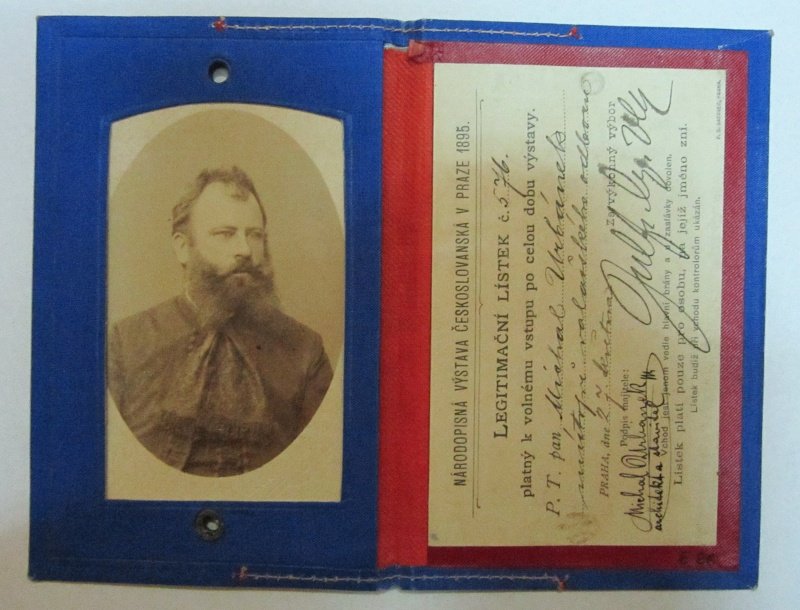 NÁRODOPISNÁ VÝSTAVA ČESKOSLOVANSKÁ V PRAZE 1895.
LEGITIMAČNÍ LÍSTEK č. 576.
platný k volnému vstupu po celou dobu výstavy.
P. T. pán Michal Urbánek
valašského odboru
PRAHA, dne 27. května
Za výkonný výbor
Podpis majitele:
Michal Urbanek
architekt a stavitel
Vchod jest jenom vedle hlavní brány a u zastávky dovolen.
Lístek platí pouze pro osobu, na jejíž jméno zní.
Lístek budiž při vchodu kontrolorům ukázán.